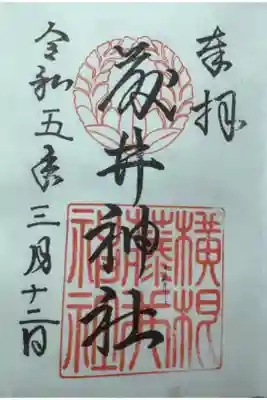 奉拝
藤井神社
令和五年三月十二日
横根
藤井
神社